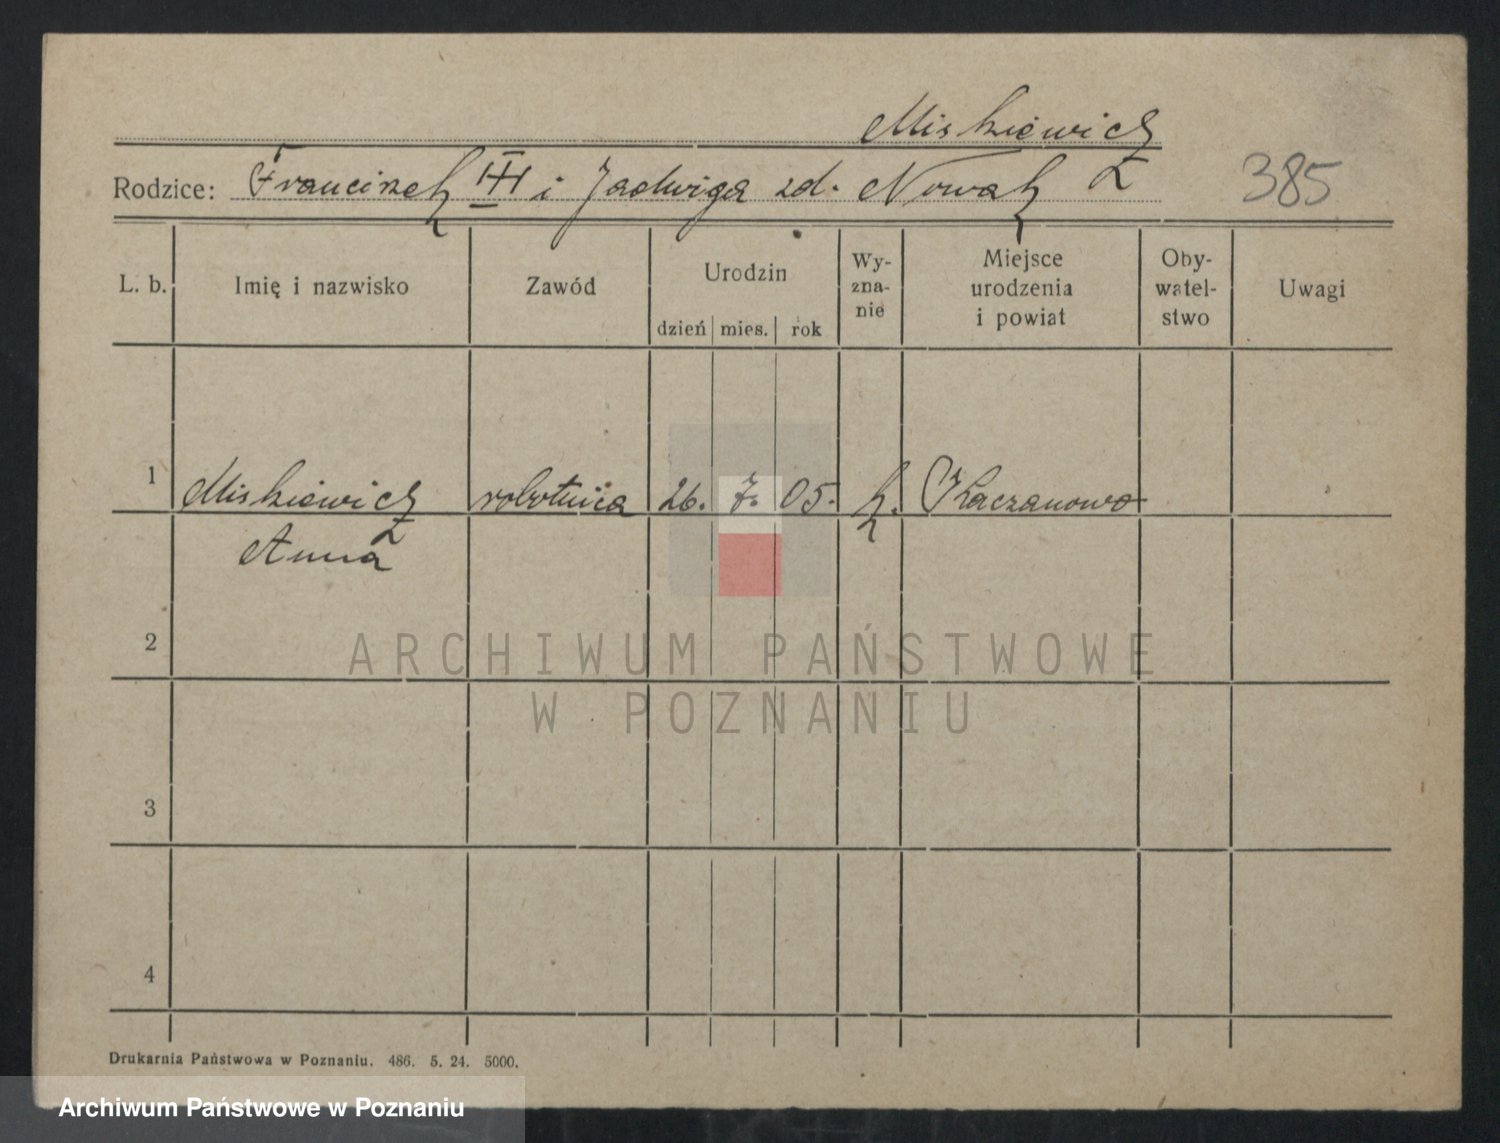 Miskiewicz
Rodzice: Franciszek III i Jadwiga zd. Nowak
385
L. b.
Imię i nazwisko
Zawód
Urodzin
dzień
mies.
rok
Wy-
zna-
nie
Miejsce
urodzenia
i powiat
Oby-
watel-
stwo
Uwagi
1 Miskiewicz robotnica 26. 7. 05. k. Kaczanowo
Anna
2
ARCHIWUM PAŃSTWOWE
W POZNANIU
3
4
Drukarnia Państwowa w Poznaniu. 486. 5. 24. 5000.
Archiwum Państwowe w Poznaniu